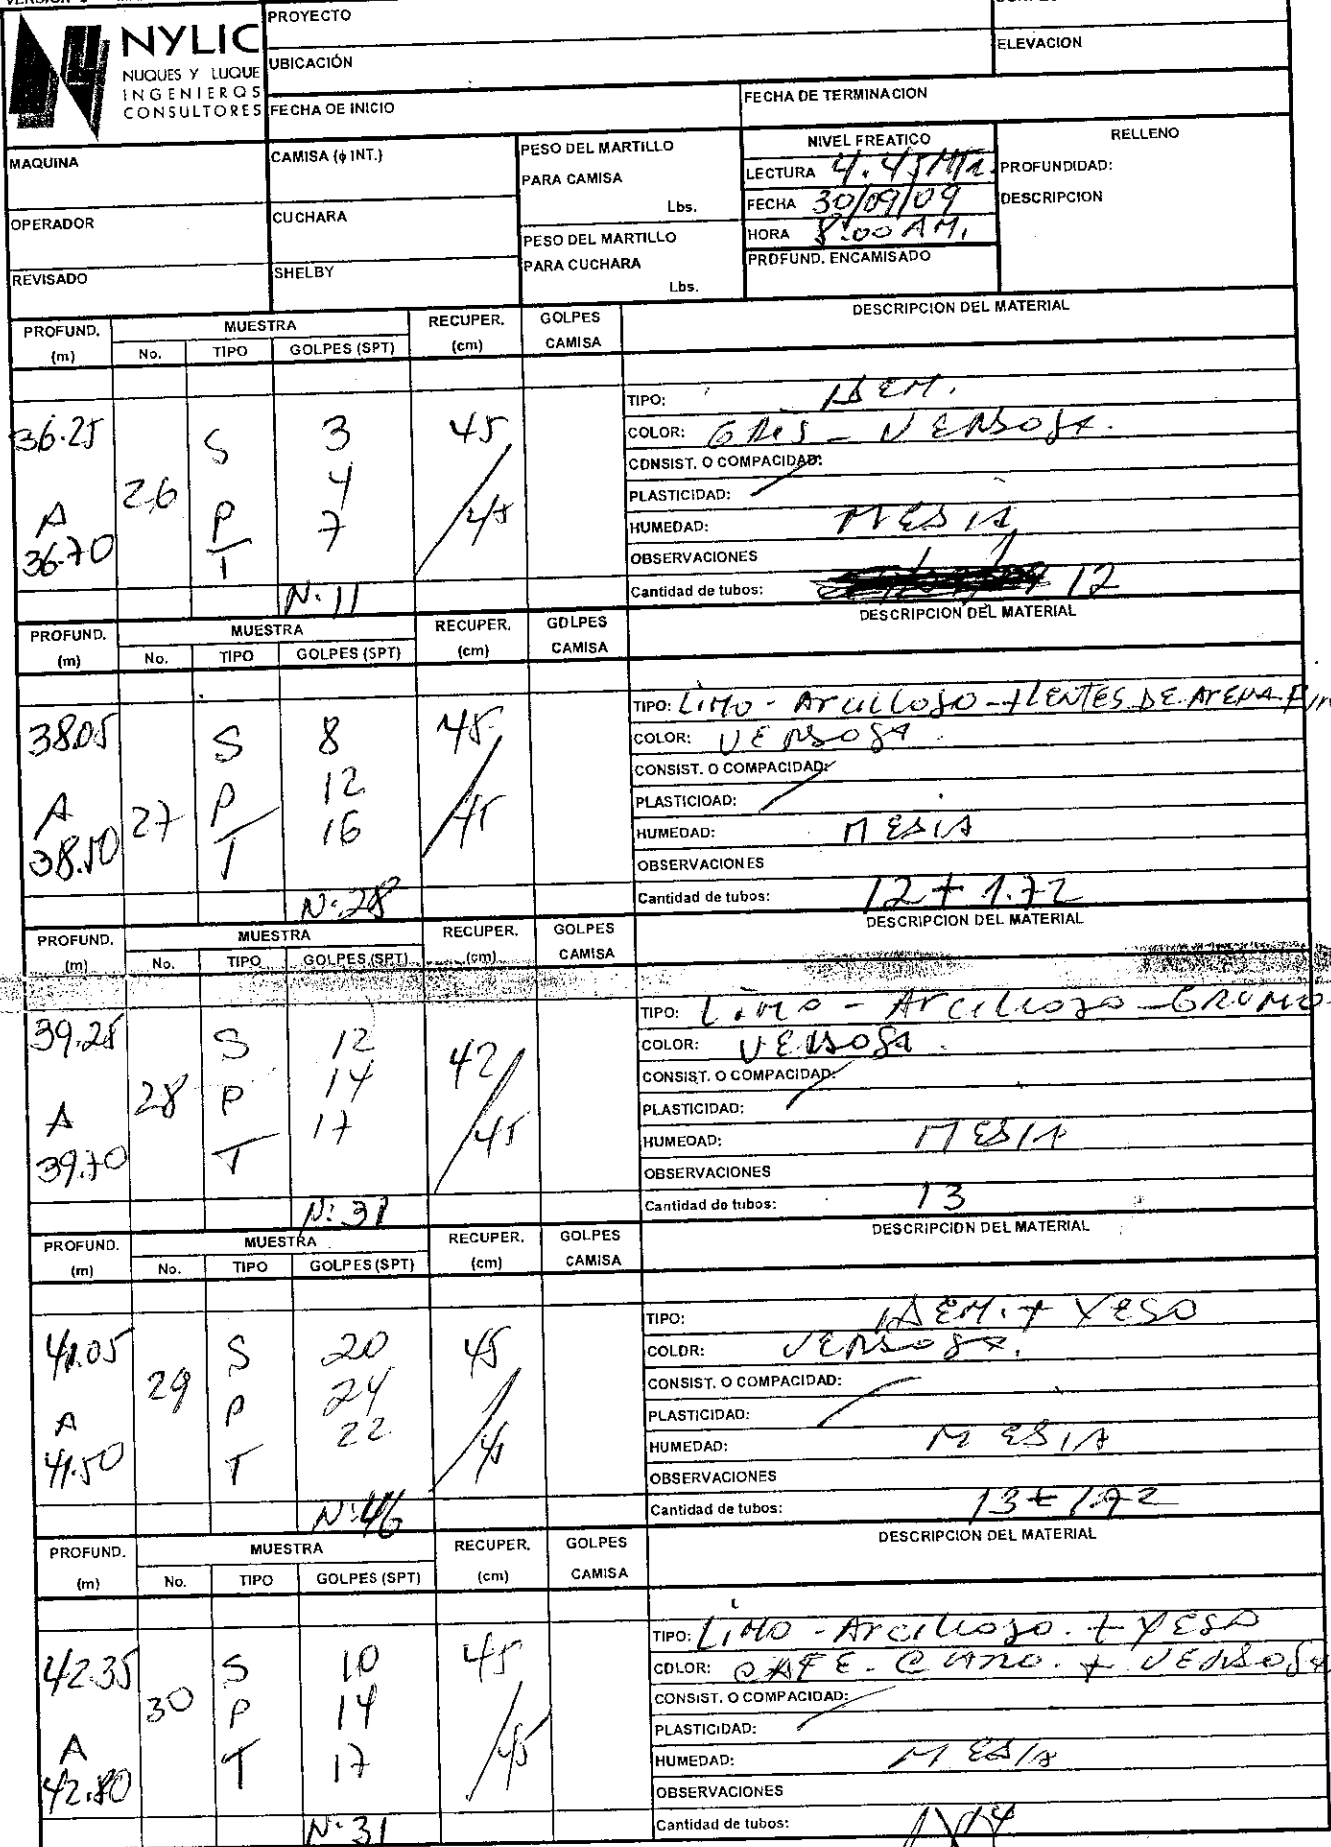 NYLIC
NUQUES Y LUQUE
INGENIEROS
CONSULTORES
PROYECTO
UBICACIÓN
ELEVACION
FECHA DE INICIO
FECHA DE TERMINACION
MAQUINA
CAMISA (ϕ INT.)
PESO DEL MARTILLO
PARA CAMISA
Lbs.
NIVEL FREATICO
LECTURA 4.45 Mts.
FECHA 30/09/09
HORA 8:00 AM.
PROFUND. ENCAMISADO
RELLENO
PROFUNDIDAD:
DESCRIPCION
OPERADOR
CUCHARA
PESO DEL MARTILLO
PARA CUCHARA
Lbs.
REVISADO
SHELBY
PROFUND. (m)
MUESTRA
No. TIPO GOLPES (SPT)
RECUPER. (cm)
GOLPES CAMISA
DESCRIPCION DEL MATERIAL
36.25 A 36.70
26
S P T
3
4
7
N: 11
45/45
TIPO: IDEM.
COLOR: GRIS - VERDOSA.
CONSIST. O COMPACIDAD:
PLASTICIDAD:
HUMEDAD: MEDIA
OBSERVACIONES
Cantidad de tubos: 12
PROFUND. (m)
MUESTRA
No. TIPO GOLPES (SPT)
RECUPER. (cm)
GOLPES CAMISA
DESCRIPCION DEL MATERIAL
38.05 A 38.50
27
S P T
8
12
16
N: 28
45/45
TIPO: LIMO - Arcilloso - + LENTES DE ArENA FIN
COLOR: VERDOSA.
CONSIST. O COMPACIDAD:
PLASTICIDAD:
HUMEDAD: MEDIA
OBSERVACIONES
Cantidad de tubos: 12 + 1.72
PROFUND. (m)
MUESTRA
No. TIPO GOLPES (SPT)
RECUPER. (cm)
GOLPES CAMISA
DESCRIPCION DEL MATERIAL
39.25 A 39.70
28
S P T
12
14
17
N: 31
42/45
TIPO: Limo - Arcilloso - GRUMO
COLOR: VERDOSA.
CONSIST. O COMPACIDAD:
PLASTICIDAD:
HUMEDAD: MEDIA
OBSERVACIONES
Cantidad de tubos: 13
PROFUND. (m)
MUESTRA
No. TIPO GOLPES (SPT)
RECUPER. (cm)
GOLPES CAMISA
DESCRIPCION DEL MATERIAL
41.05 A 41.50
29
S P T
20
24
22
N: 46
45/45
TIPO: IDEM. + YESO
COLOR: VERDOSA.
CONSIST. O COMPACIDAD:
PLASTICIDAD:
HUMEDAD: MEDIA
OBSERVACIONES
Cantidad de tubos: 13 + 1.72
PROFUND. (m)
MUESTRA
No. TIPO GOLPES (SPT)
RECUPER. (cm)
GOLPES CAMISA
DESCRIPCION DEL MATERIAL
42.35 A 42.80
30
S P T
10
14
17
N: 31
45/45
TIPO: LIMO - Arcilloso. + YESO
COLOR: CAFE. CLARO. + VERDOSA
CONSIST. O COMPACIDAD:
PLASTICIDAD:
HUMEDAD: MEDIA
OBSERVACIONES
Cantidad de tubos: 14